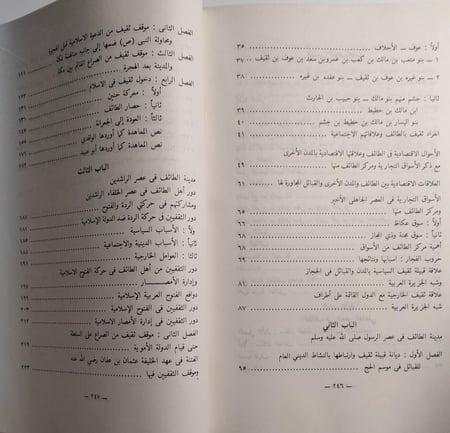 أولاً : عوف – الأحلاف ٣٥
١ – بنو متعب بن مالك بن كعب بن عمرو بن سعد بن عوف بن ثقيف ٣٧
٢ – بنو غيره بن عوف بن ثقيف – بنو عقده بن غيره ٣٨
ثانيا : جشم منهم بنو مالك – بنو حبيب بن الحارث
ابن مالك بن حطيط ٣٩
بنو اليسار بن مالك بن حطيط بن جشم ٤٠
افراد ثقيف بالطائف وعلاقاتهم الاجتماعية ٤١
الأحوال الاقتصادية في الطائف وعلاقتها الاقتصادية بالمدن الأخرى
مع ذكر الأسواق التجارية ومركز الطائف منها ٤٩
العلاقات الاقتصادية بين الطائف والمدن الأخرى والقبائل المجاورة لها ٦١
الأسواق التجارية في العصر الجاهلي الأخير
ومركز الطائف منها ٦٥
أولاً : سوق عكاظ ٦٦
ثانياً : سوق مجنة وذي المجاز ٦٨
أهمية مركز الطائف من الأسواق ٦٨
حروب الفجار : أسبابها ونتائجها ٦٩
علاقة قبيلة ثقيف السياسية بالمدن والقبائل في الحجاز
وشبه الجزيرة العربية ٨١
علاقة ثقيف الخارجية مع الدول القائمة على أطراف
شبه الجزيرة العربية ٨٧
الباب الثاني
مدينة الطائف في عصر الرسول صلى الله عليه وسلم
الفصل الأول : ديانة قبيلة ثقيف وارتباطها بالنشاط الديني العام
للقبائل في موسم الحج ٩٥
– ٢٤٦ –
الفصل الثاني : موقف ثقيف من الدعوة الاسلامية قبل الهجرة
ومحاولة النبي (ص) ضمها إلى جانبه
الفصل الثالث : موقف ثقيف من الصراع القائم بين مكة
والمدينة بعد الهجرة
الفصل الرابع : دخول ثقيف في الاسلام
أولاً : معركة حنين
ثانياً : حصار الطائف
ثالثاً : العودة إلى الجعرانة
نص المعاهدة كما أوردها الواقدي
نص المعاهدة كما أوردها أبو عبيد
الباب الثالث
مدينة الطائف في عصر الراشدين
دور أهل الطائف في عصر الخلفاء الراشدين
ومشاركتهم في حركتي الردة والفتوح
دور الثقفيين في حركة الردة ضد الدولة الإسلامية
أولاً : الأسباب السياسية
ثانياً : الأسباب الدينية والاجتماعية
ثالثاً : العوامل الخارجية
دور الثقفيين من أهل الطائف في حركة الفتح الاسلامية
وإدارة الأمصار
دوافع الفتوح العربية الإسلامية
دور الثقفيين في الفتوح الإسلامية
دور الثقفيين في إدارة الأمصار الإسلامية
الفصل الثاني : موقف الثقفيين من الصراع على السلطة
حتى قيام الدولة الأموية ٢١٧
الفتنة في عهد الخليفة عثمان بن عفان رضي الله عنه
وموقف الثقفيين فيها ٢٢٣
– ٢٤٧ –